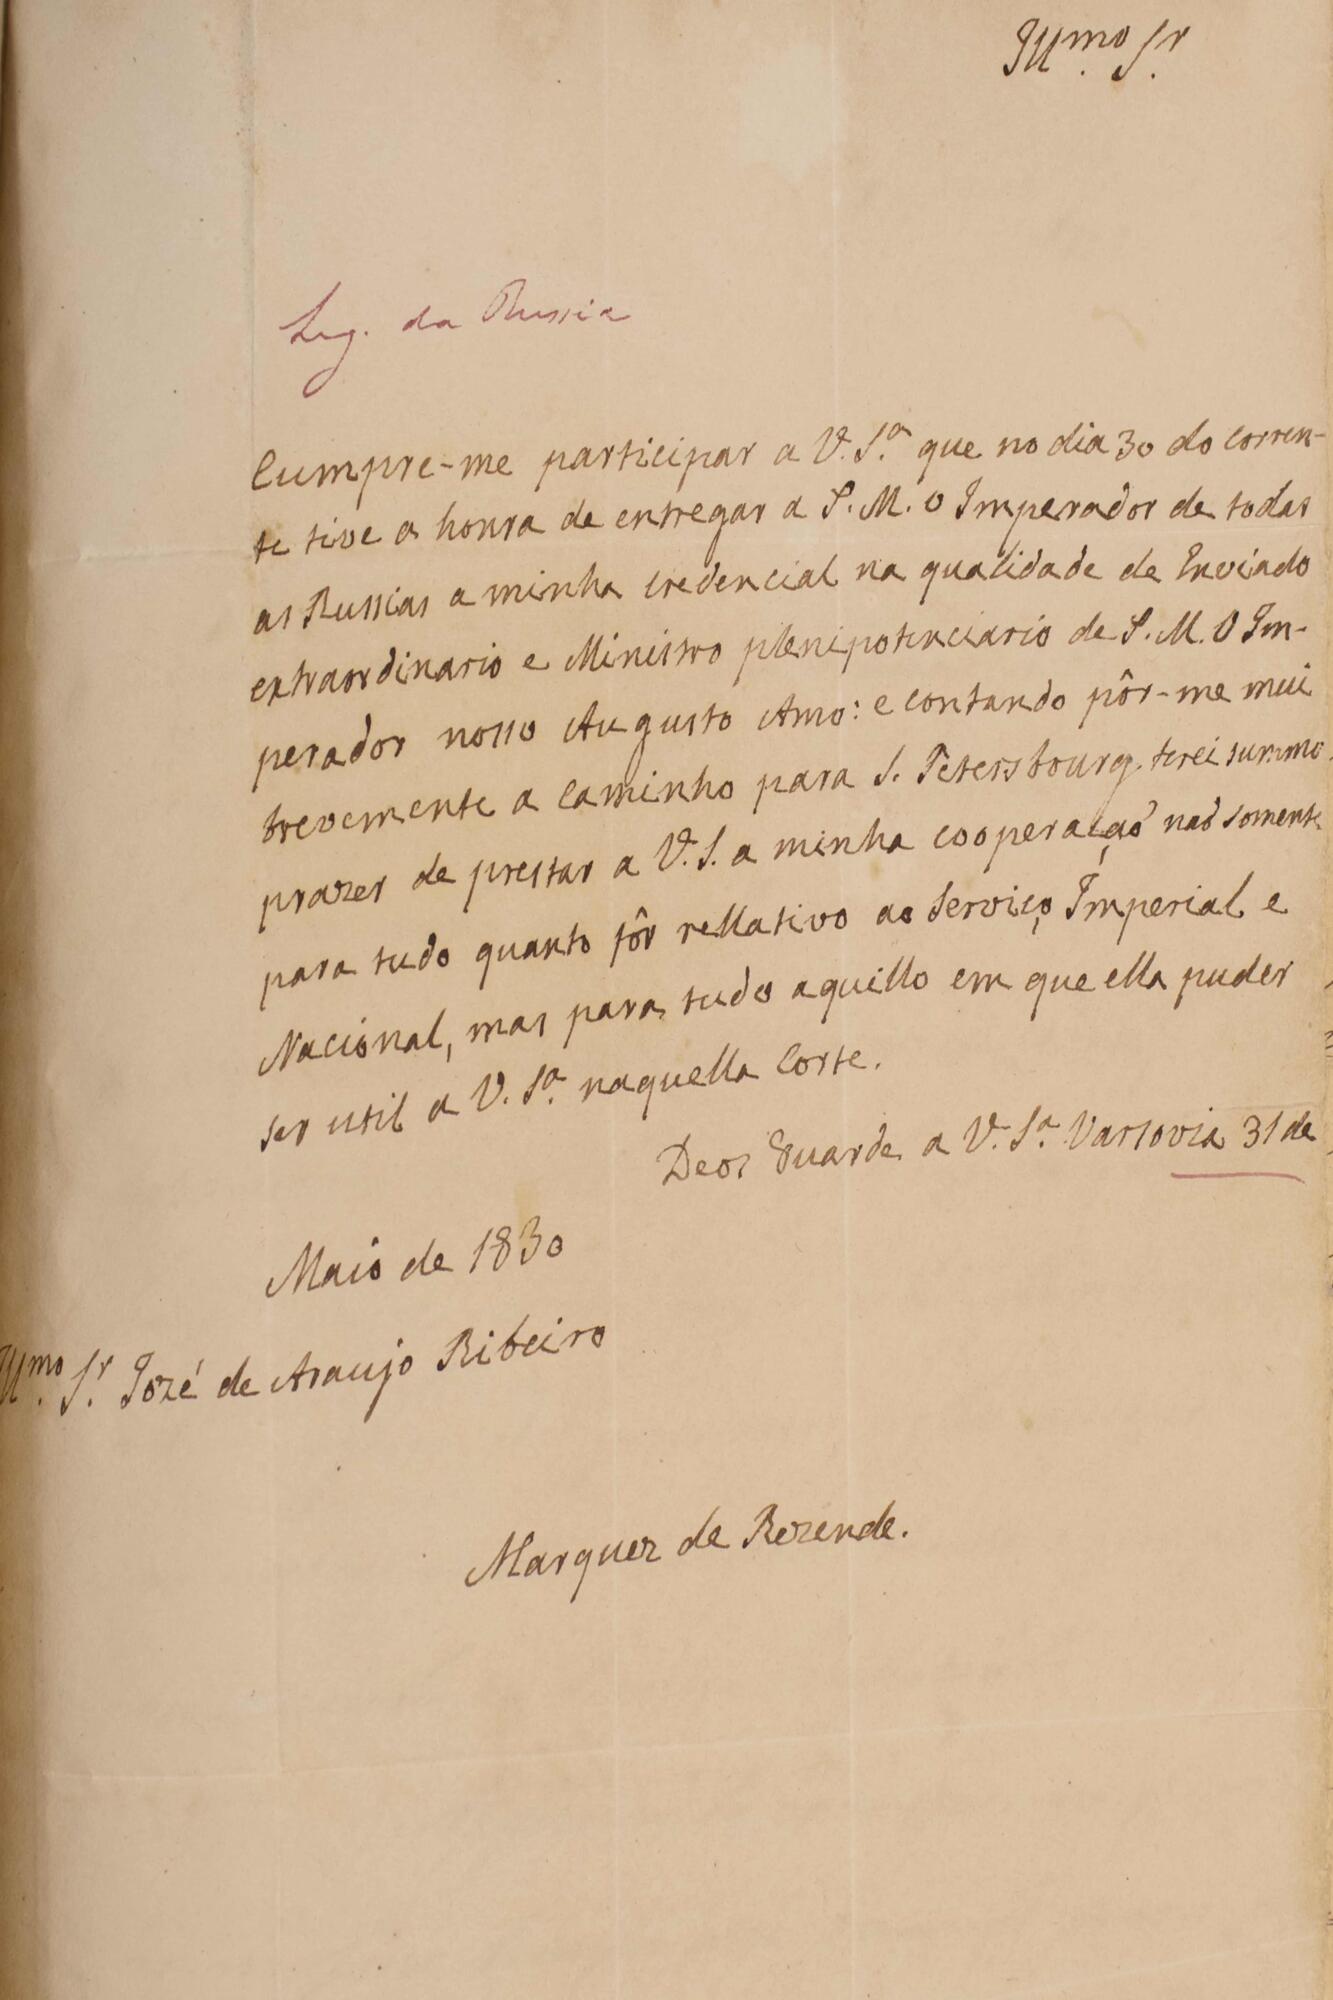 Illmo. Sr.
Leg. da Russia
Cumpre-me participar a V. Sª. que no dia 30 do corren-
te tive a honra de entregar a S. M. o Imperador de todas
as Russias a minha credencial na qualidade de Enviado
extraordinario e Ministro plenipotenciario de S. M. O Im-
perador nosso Augusto Amo: e contando pôr-me mui
brevemente a caminho para S. Petersbourg, terei summo
prazer de prestar a V. S. a minha cooperação não somente
para tudo quanto fôr rellativo ao Serviço Imperial e
Nacional, mas para tudo aquillo em que ella puder
ser util a V. Sª. naquella Corte.
Deos Guarde a V. Sª. Varsovia 31 de
Maio de 1830
Illmo. Sr. Jozé de Araujo Ribeiro
Marquez de Rezende.